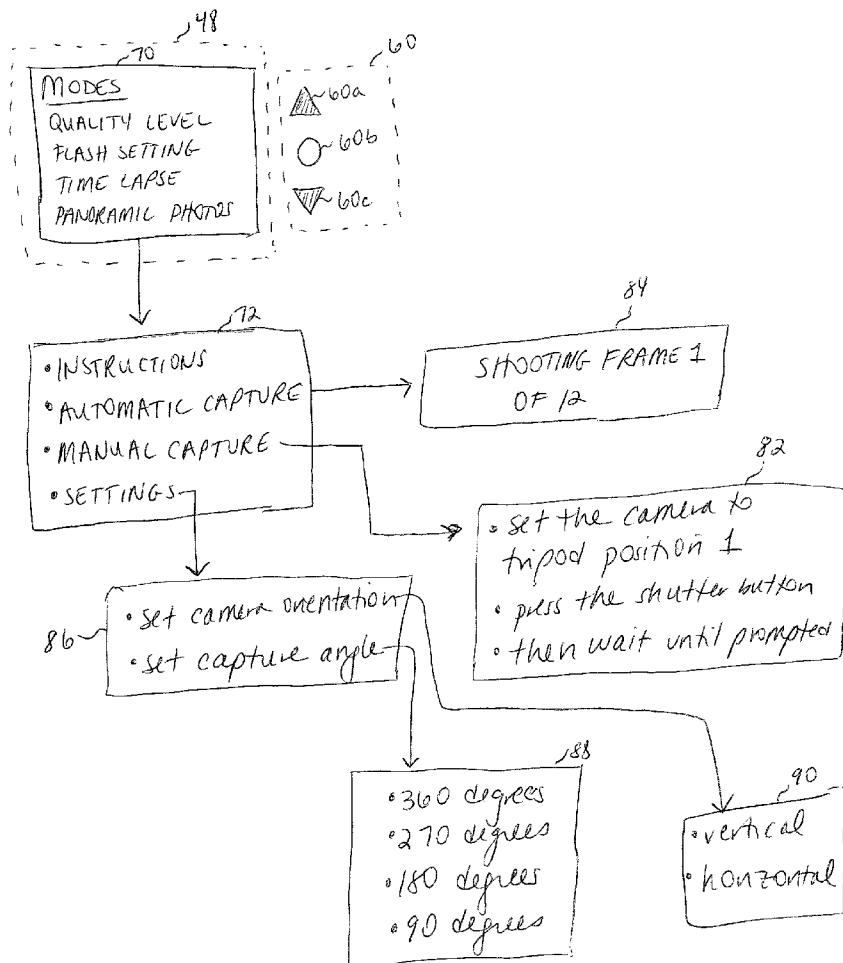 48
70
60
MODES
QUALITY LEVEL
FLASH SETTING
TIME LAPSE
PANORAMIC PHOTOS
60a
60b
60c
72
• INSTRUCTIONS
• AUTOMATIC CAPTURE
• MANUAL CAPTURE
• SETTINGS
84
SHOOTING FRAME 1
OF 12
82
• set the camera to
tripod position 1
• press the shutter button
• then wait until prompted
86
• set camera orientation
• set capture angle
88
• 360 degrees
• 270 degrees
• 180 degrees
• 90 degrees
90
• vertical
• horizontal